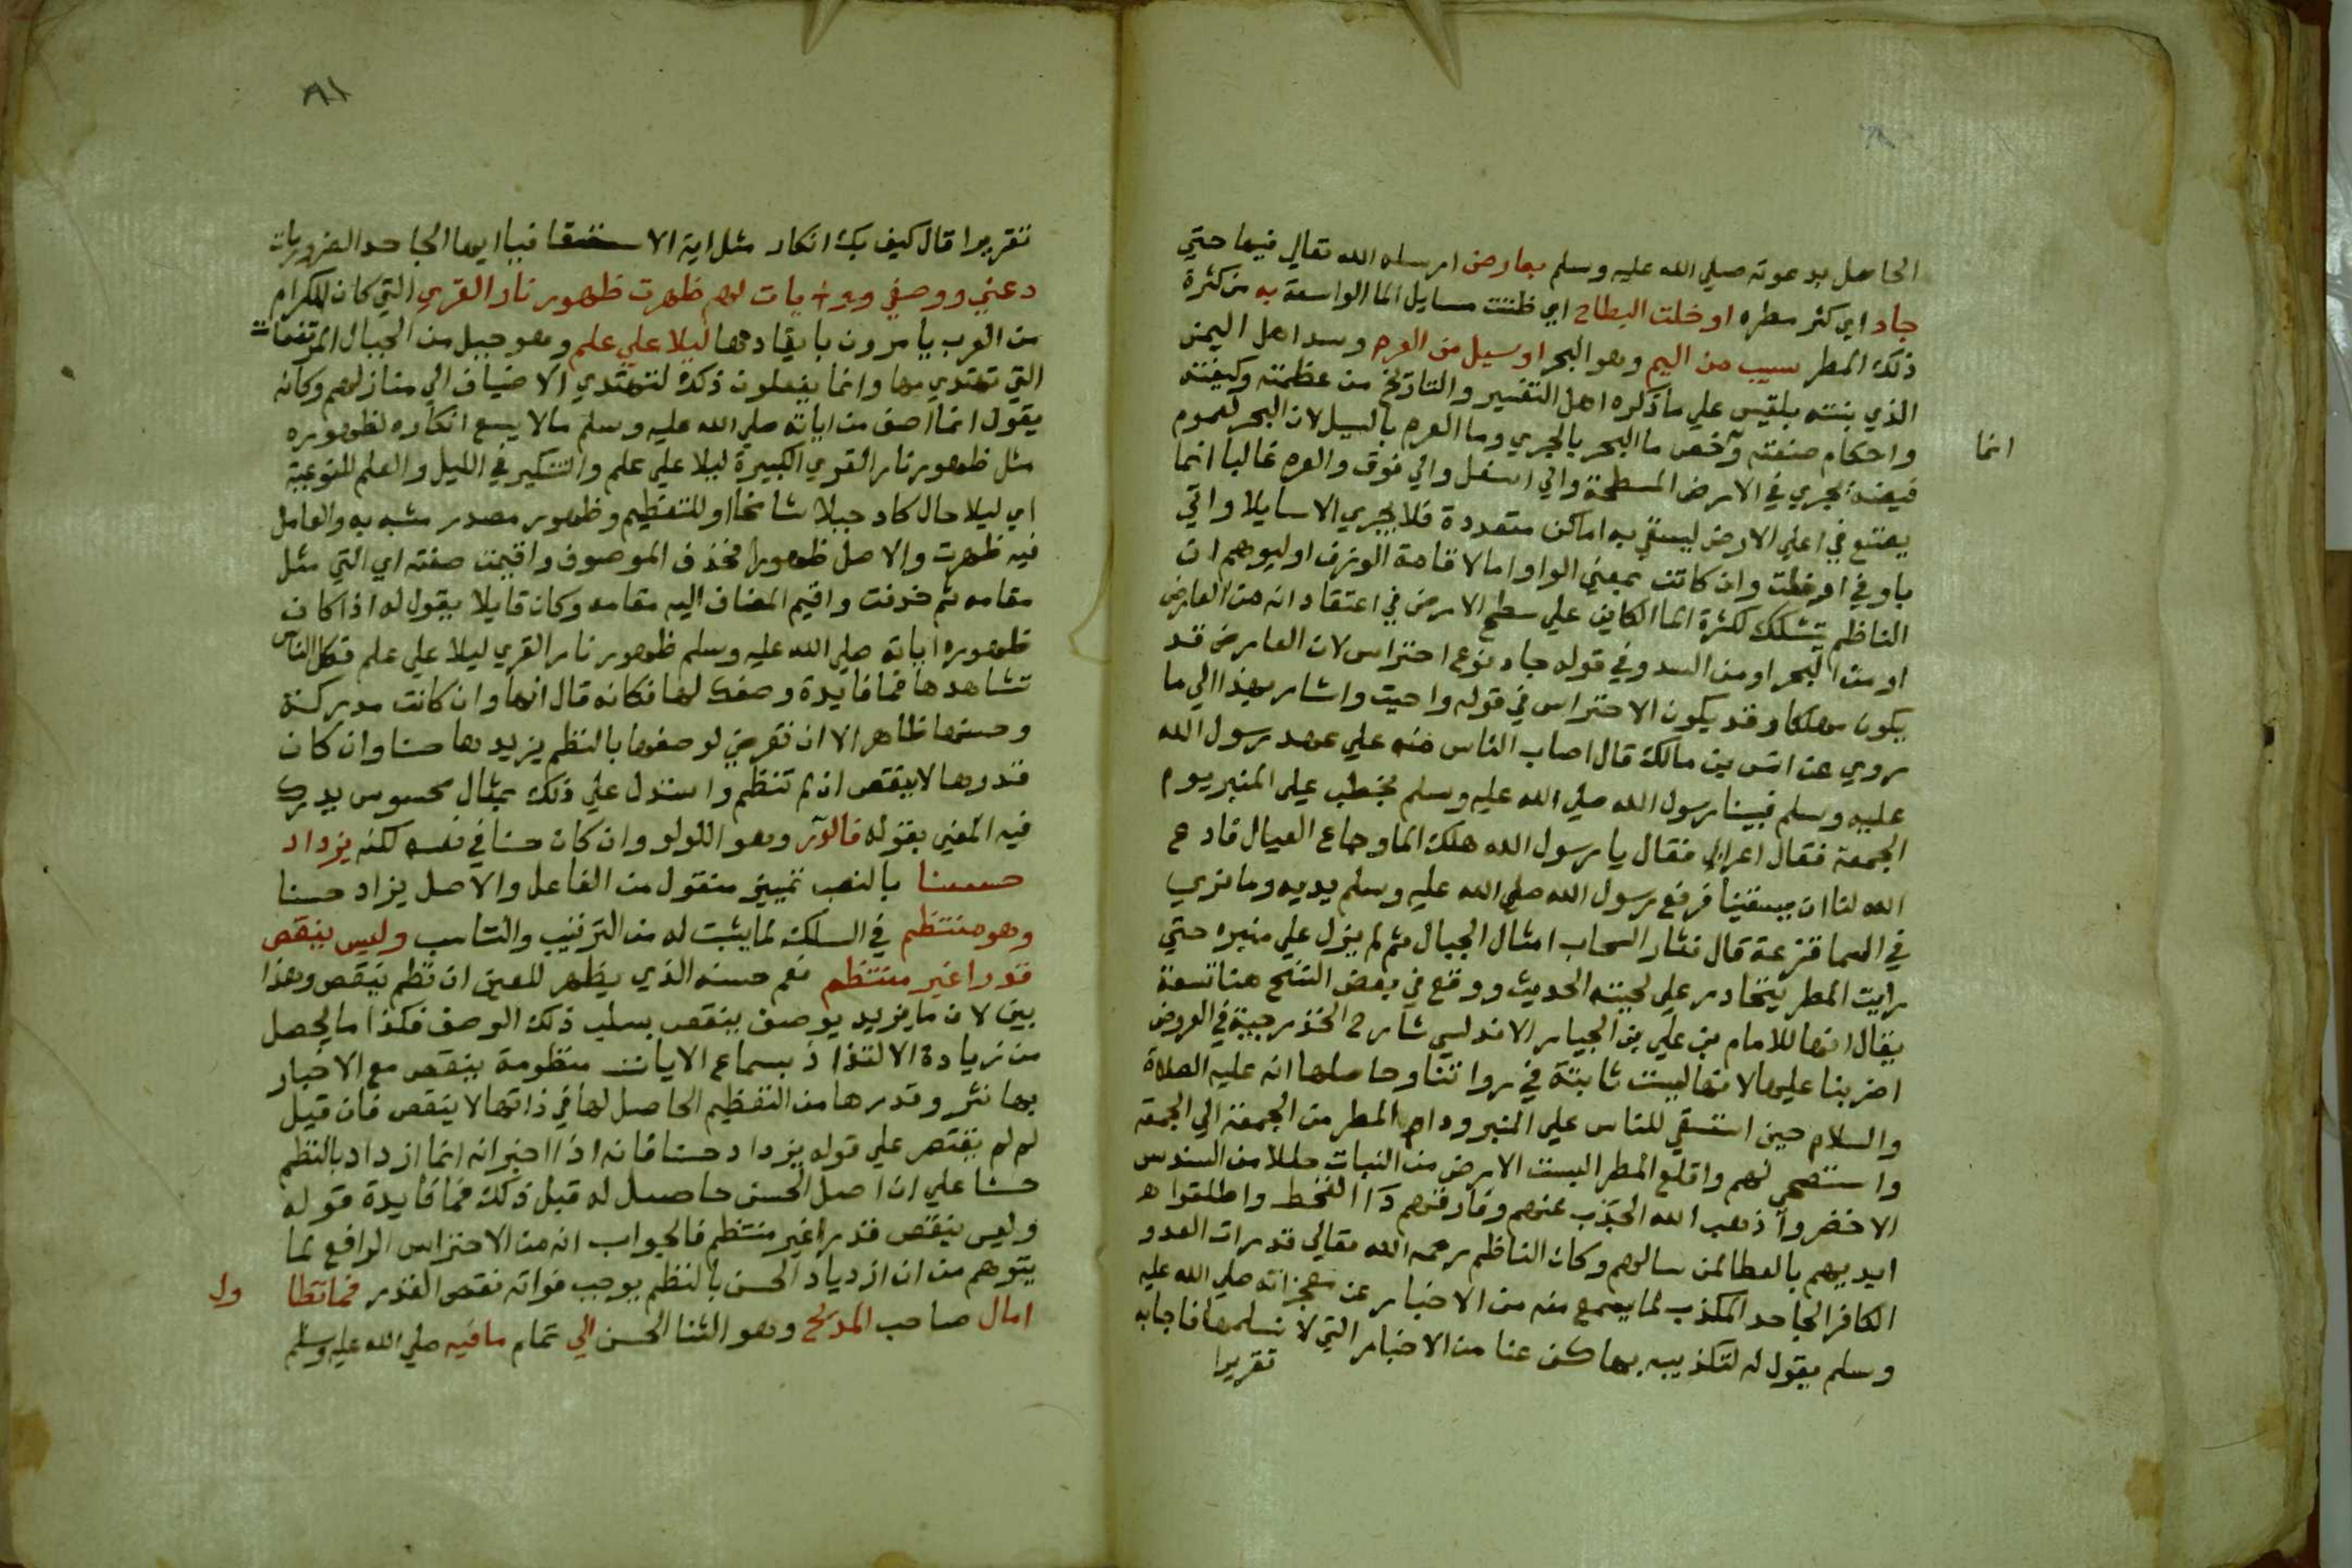 الحاصل بدعوته صلي الله عليه وسلم بعارض ارسله الله تعالي فيها حتي
جاد اي كثر مطره او خلت البطاح اي ظننت مسايل الما الواسعة به من كثرة
ذلك المطر سيب من اليم وهو البحر او سيل من العرم وسد اهل اليمن
الذي بنته بلقيس علي ما ذكره اهل التفسير والتاريخ من عظمته وكيفيته
واحكام صنعته وخص ما البحر بالجري وما العرم بالسيل لان البحر لعموم
انما
فيضه يجري في الارض المسطحة والي اسفل والي فوق والعرم غالبا انما
يصنع في اعلي الارض ليسقي به اماكن متعددة فلا يجري الا سايلا واتي
باو في او خلت وان كانت بمعني الواو اما لاقامة الوزن او ليوهم ان
الناظم تشكك لكثرة الما الكاين علي سطح الارض في اعتقاد انه من العارض
او من البحر او من السد وفي قوله جاد نوع احتراس لان العارض قد
يكون مهلكا وقد يكون الاحتراس في قوله واحيت واشار بهذا الي ما
روي عن انس بن مالك قال اصاب الناس سنه علي عهد رسول الله
عليه وسلم فبينا رسول الله صلي الله عليه وسلم يخطب علي المنبر يوم
الجمعة فقال اعرابي فقال يا رسول الله هلك الما وجاع العيال فادع
الله لنا ان يسقينا فرفع رسول الله صلي الله عليه وسلم يديه وما نري
في السما قزعة قال فثار السحاب امثال الجبال ثم لم ينزل علي منبره حتي
رايت المطر يتحادر علي لحيته الحديث ووقع في بعض النسخ هنا تسعة
يقال انها للامام بن علي بن الجيار الاندلسي شارح الخزرجية في العروض
اضربنا عليها لانها ليست ثابتة في روايتنا وحاصلها انه عليه الصلاة
والسلام حين استسقي للناس علي المنبر ودام المطر من الجمعة الي الجمعة
واستصحي لهم واقلع المطر البست الارض من النبات حللا من السندس
الاخضر واذهب الله الجدب عنهم وفارقهم دا القحط واطلقوا
ايديهم بالعطا لمن سالهم وكان الناظم رحمه الله تعالي قدر ان العدو
الكافر الجاحد المكذب لما يسمع منه من الاخبار عن معجزاته صلي الله عليه
وسلم يقول له لتكذيبه بها كف عنا من الاخبار التي لا نسلمها فاجابه
تقريرا
٨١
تقريرا قال كيف بك انكار مثل اية الاستسقا فيا ايها الجاحد الضروريات
دعني ووصفي ايات لهم ظهرت ظهور نار القري التي كان للكرام
من العرب يامرون بايقادها ليلا علي علم وهو جبل من الجبال المرتفعات
التي تهتدي بها وانما يفعلون ذلك لتهتدي الاضياف الي منازلهم وكانه
يقول انما اصف من اياته صلي الله عليه وسلم ما لا يسع انكاره لظهوره
مثل ظهور نار القري الكبيرة ليلا علي علم والتنكير في الليل والعلم للنوعية
اي ليلا حالكا وجبلا شامخا او للتعظيم وظهور مصدر مشبه به والعامل
فيه ظهرت والاصل ظهورا فحذف الموصوف واقيمت صفته اي التي مثل
مقامه ثم حذفت واقيم المضاف اليه مقامه وكان قايلا يقول له اذا كان
ظهور اياته صلي الله عليه وسلم ظهور نار القري ليلا علي علم فكل الناس
تشاهدها فما فايدة وصفك لها فكانه قال انها وان كانت مدركة
وحسنها ظاهرا الا ان تعرضي لوصفها بالنظم يزيدها حسنا وان كان
قدرها لا ينقص ان لم تنظم واستدل علي ذلك بمثال محسوس يدرك
فيه المعني بقوله فالدر وهو اللولو وان كان حسنا في نفسه لكنه يزداد
حسنا بالنصب تمييز منقول من الفاعل والاصل يزاد حسنا
وهو منتظم في السلك لما يثبت له من الترتيب والتناسب وليس ينقص
قدرا غير منتظم نعم حسنه الذي يظهر للعين ان نظم ينقص وهذا
بين لان ما يزيد بوصف ينقص بسلب ذلك الوصف فكذا ما يحصل
من زيادة الالتذاذ بسماع الايات منظومة ينقص مع الاخبار
بها نثر وقدرها من التعظيم الحاصل لها في ذاتها لا ينقص فان قيل
لم لم يقتصر علي قوله يزداد حسنا فانه اذا اخبر انه انما ازداد بالنظم
حسنا علي ان اصل الحسن حاصل له قبل ذلك فما فايدة قوله
وليس ينقص قدرا غير منتظم فالجواب انه من الاحتراس الرافع لما
يتوهم من ان ازدياد الحسن بالنظم يوجب فواته نقص القدر فما تطا
ول
امال صاحب المديح وهو الثنا الحسن الي تمام ما فيه صلي الله عليه وسلم